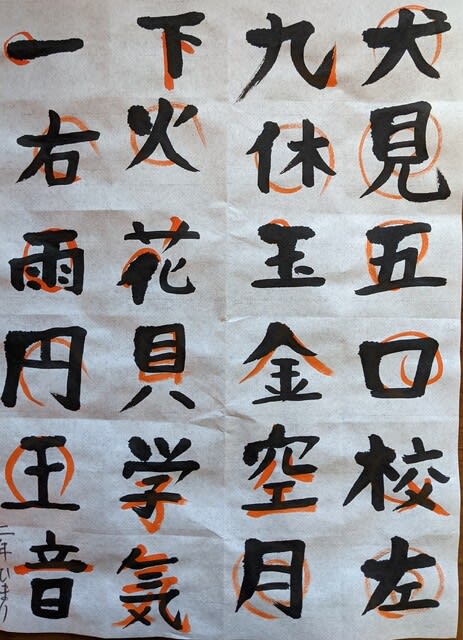 一右雨円王音
下火花貝学気
九休玉金空月
犬見五口校左
二年ひまり